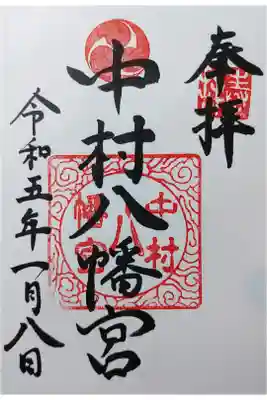 奉拝
中村八幡宮
令和五年一月八日
中村
八
幡宮